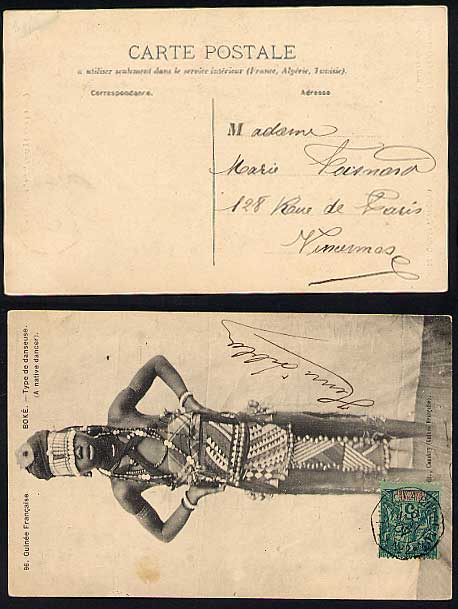 CARTE POSTALE
à utiliser seulement dans le service intérieur (France, Algérie, Tunisie).
Correspondance.
Adresse
Madame
Marie
128 Rue de Paris
Vincennes
96. Guinée Française BOKÉ. — Type de danseuse.
(A native dancer).